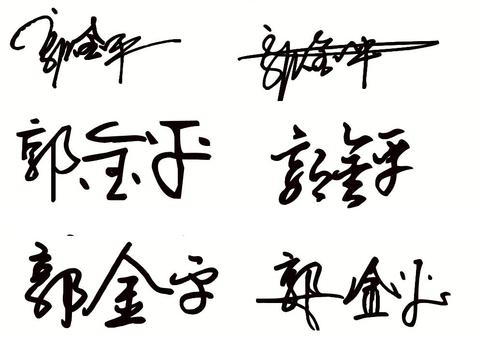 郭金平 郭金平
郭金平 郭金平
郭金平 郭金平